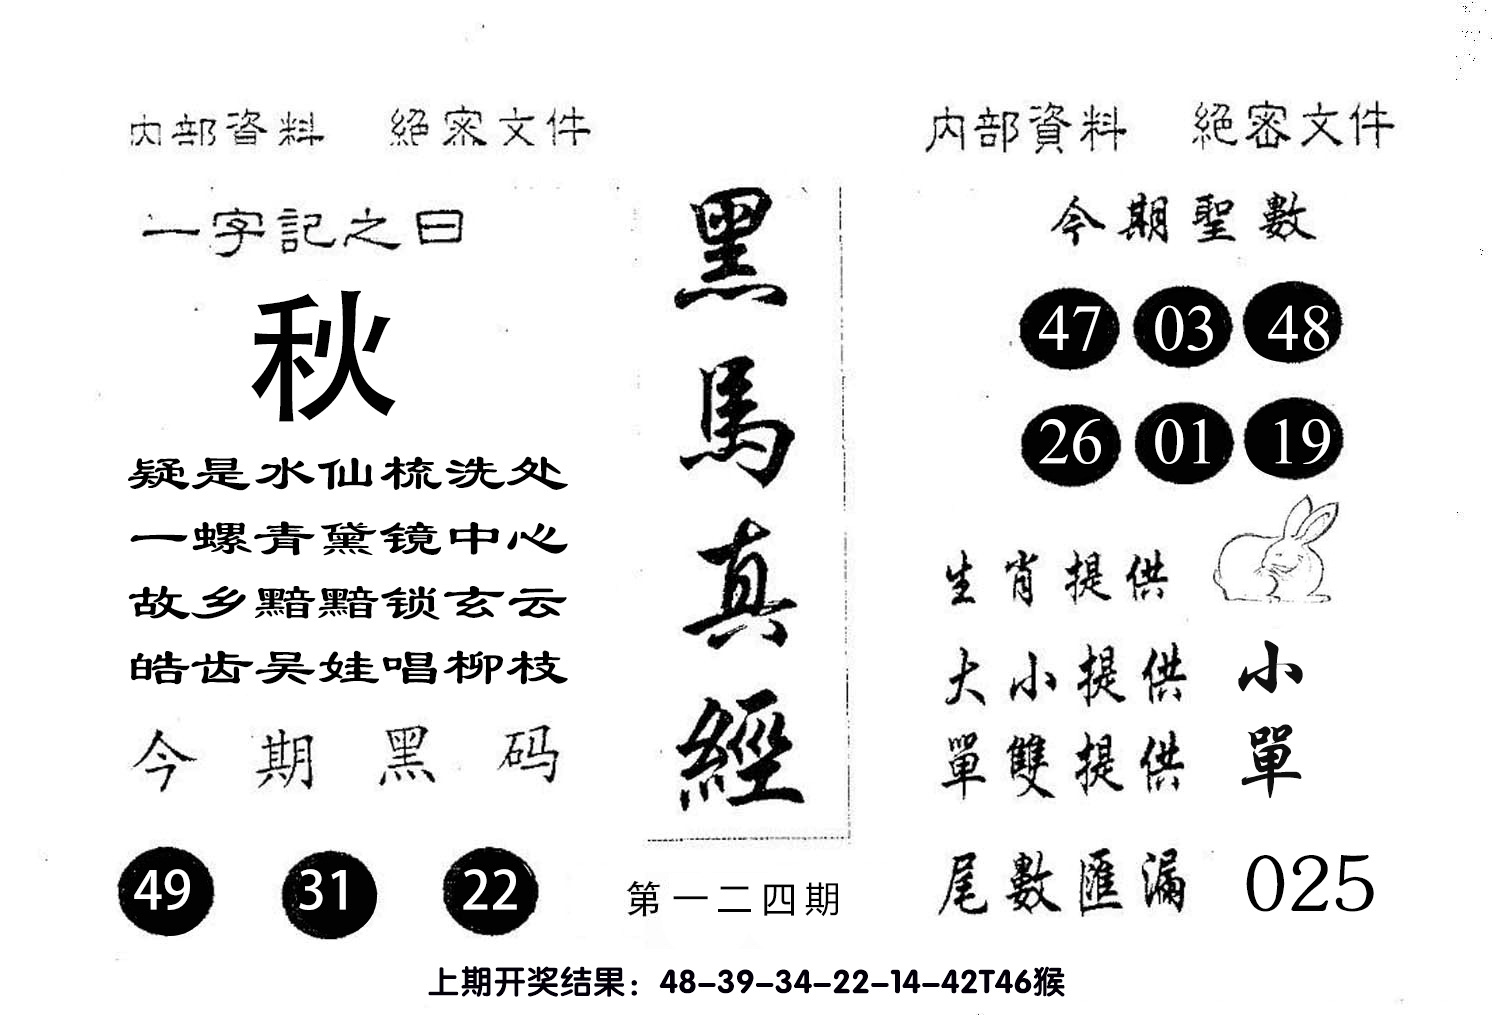 内部資料 絕密文件
一字記之曰
秋
疑是水仙梳洗处
一螺青黛镜中心
故乡黯黯锁玄云
皓齿吴娃唱柳枝
今期黑码
49 31 22
黑馬真經
第一二四期
内部資料 絕密文件
今期聖數
47 03 48
26 01 19
生肖提供
大小提供 小
單雙提供 單
尾數匯漏 025
上期开奖结果：48-39-34-22-14-42T46猴